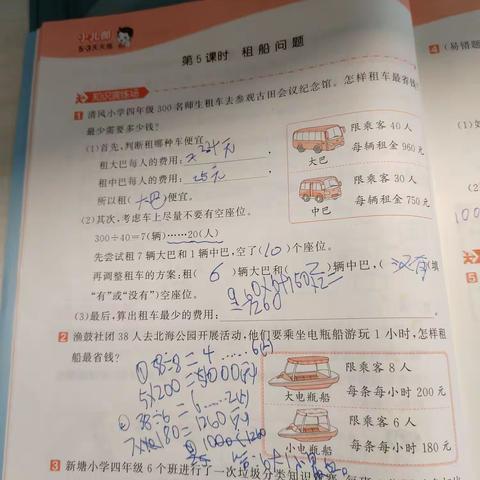 小儿郎
5·3天天练
第5课时 租船问题
知识演练场
1 清风小学四年级300名师生租车去参观古田会议纪念馆。怎样租车最省钱?
最少需要多少钱?
(1)首先,判断租哪种车便宜。
租大巴每人的费用:24元
租中巴每人的费用:25元
所以租(大巴)便宜。
限乘客40人
每辆租金960元
大巴
限乘客30人
每辆租金750元
中巴
(2)其次,考虑车上尽量不要有空座位。
300÷40=7(辆)……20(人)
先尝试租7辆大巴和1辆中巴,空了(10)个座位。
再调整租车的方案,租(6)辆大巴和(2)辆中巴,(没有)(填
“有”或“没有”)空座位。
(3)最后,算出租车最少的费用:
2 渔鼓社团38人去北海公园开展活动,他们要乘坐电瓶船游玩1小时,怎样租
船最省钱?
①38÷8=4……6(人)
5×200=1000(元)
②38÷6=6……2(人)
7×180=1260(元)
1000<1260
限乘客8人
每条每小时200元
大电瓶船
限乘客6人
每条每小时180元
小电瓶船
3 新塘小学四年级6个班进行了一次垃圾分类知识
4 (易错题
(1)如
(2)
100
5